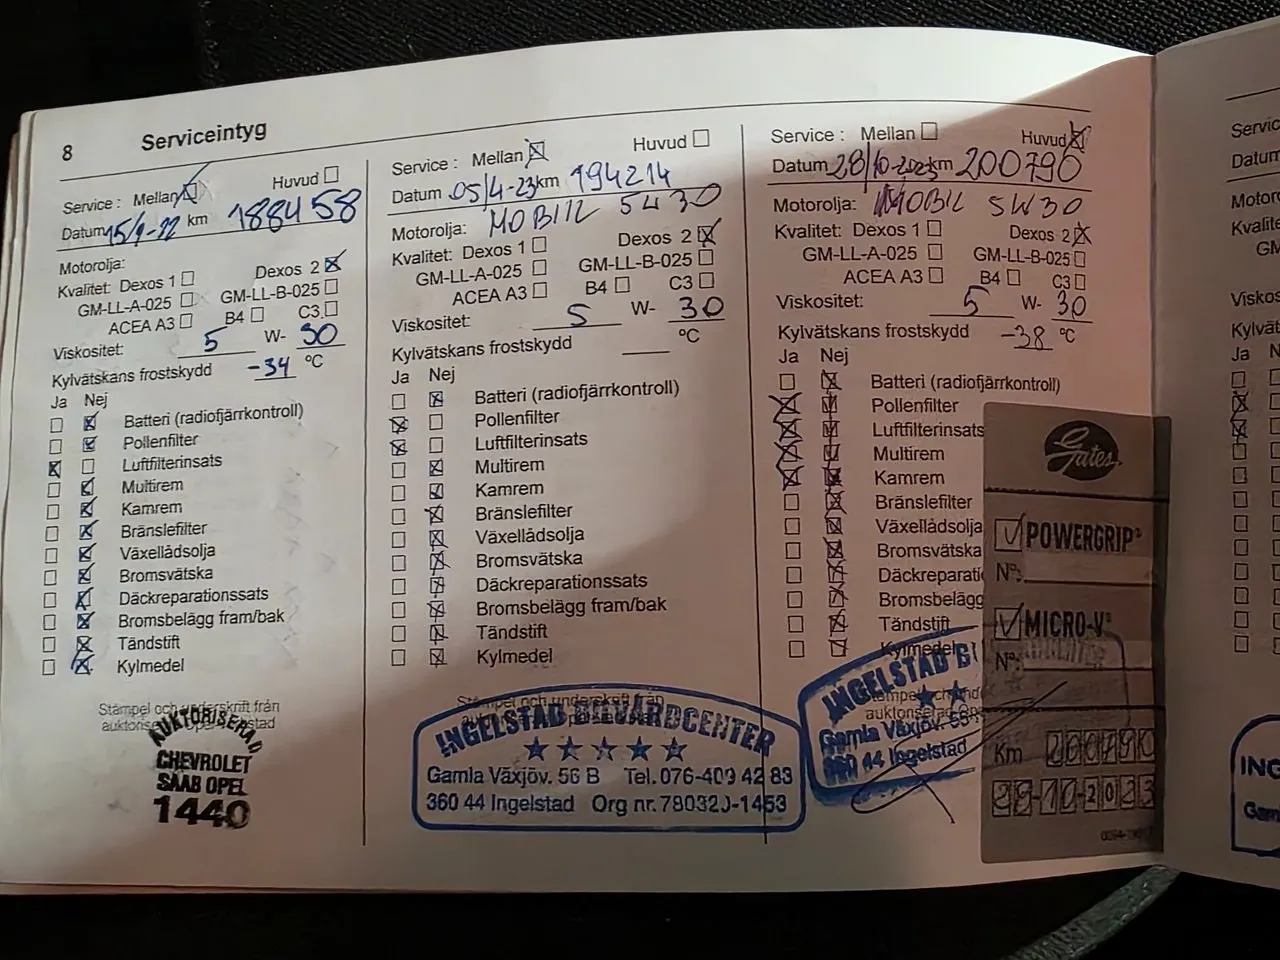 8 Serviceintyg
Service: Mellan Huvud
Datum 15/9-22 km 188458
Motorolja:
Kvalitet: Dexos 1 Dexos 2
GM-LL-A-025 GM-LL-B-025
ACEA A3 B4 C3
Viskositet: 5 W- 30
Kylvätskans frostskydd -34 °C
Ja Nej
Batteri (radiofjärrkontroll)
Pollenfilter
Luftfilterinsats
Multirem
Kamrem
Bränslefilter
Växellådsolja
Bromsvätska
Däckreparationssats
Bromsbelägg fram/bak
Tändstift
Kylmedel
Stämpel och underskrift från
AUKTORISERAD
CHEVROLET
SAAB OPEL
1440
Service: Mellan Huvud
Datum 05/4-23 km 194214
Motorolja: MOBIL 5W30
Kvalitet: Dexos 1 Dexos 2
GM-LL-A-025 GM-LL-B-025
ACEA A3 B4 C3
Viskositet: 5 W- 30
Kylvätskans frostskydd °C
Ja Nej
Batteri (radiofjärrkontroll)
Pollenfilter
Luftfilterinsats
Multirem
Kamrem
Bränslefilter
Växellådsolja
Bromsvätska
Däckreparationssats
Bromsbelägg fram/bak
Tändstift
Kylmedel
Stämpel och underskrift från
INGELSTAD BILVÅRDCENTER
Gamla Växjöv. 56 B Tel. 076-409 42 83
360 44 Ingelstad Org nr. 780320-1453
Service: Mellan Huvud
Datum 28/10-2023 km 200790
Motorolja: MOBIL 5W30
Kvalitet: Dexos 1 Dexos 2
GM-LL-A-025 GM-LL-B-025
ACEA A3 B4 C3
Viskositet: 5 W- 30
Kylvätskans frostskydd -38 °C
Ja Nej
Batteri (radiofjärrkontroll)
Pollenfilter
Luftfilterinsats
Multirem
Kamrem
Bränslefilter
Växellådsolja
Bromsvätska
Däckreparati
Bromsbelägg
Tändstift
Kylmedel
INGELSTAD
Gamla Växjöv. 56
360 44 Ingelstad
Gates
POWERGRIP®
N°:
MICRO-V®
N°:
Km 200790
28-10-2023
Servic
Datum
Motor
Kvalite
Viskos
Kylvät
Ja N
ING
Gam